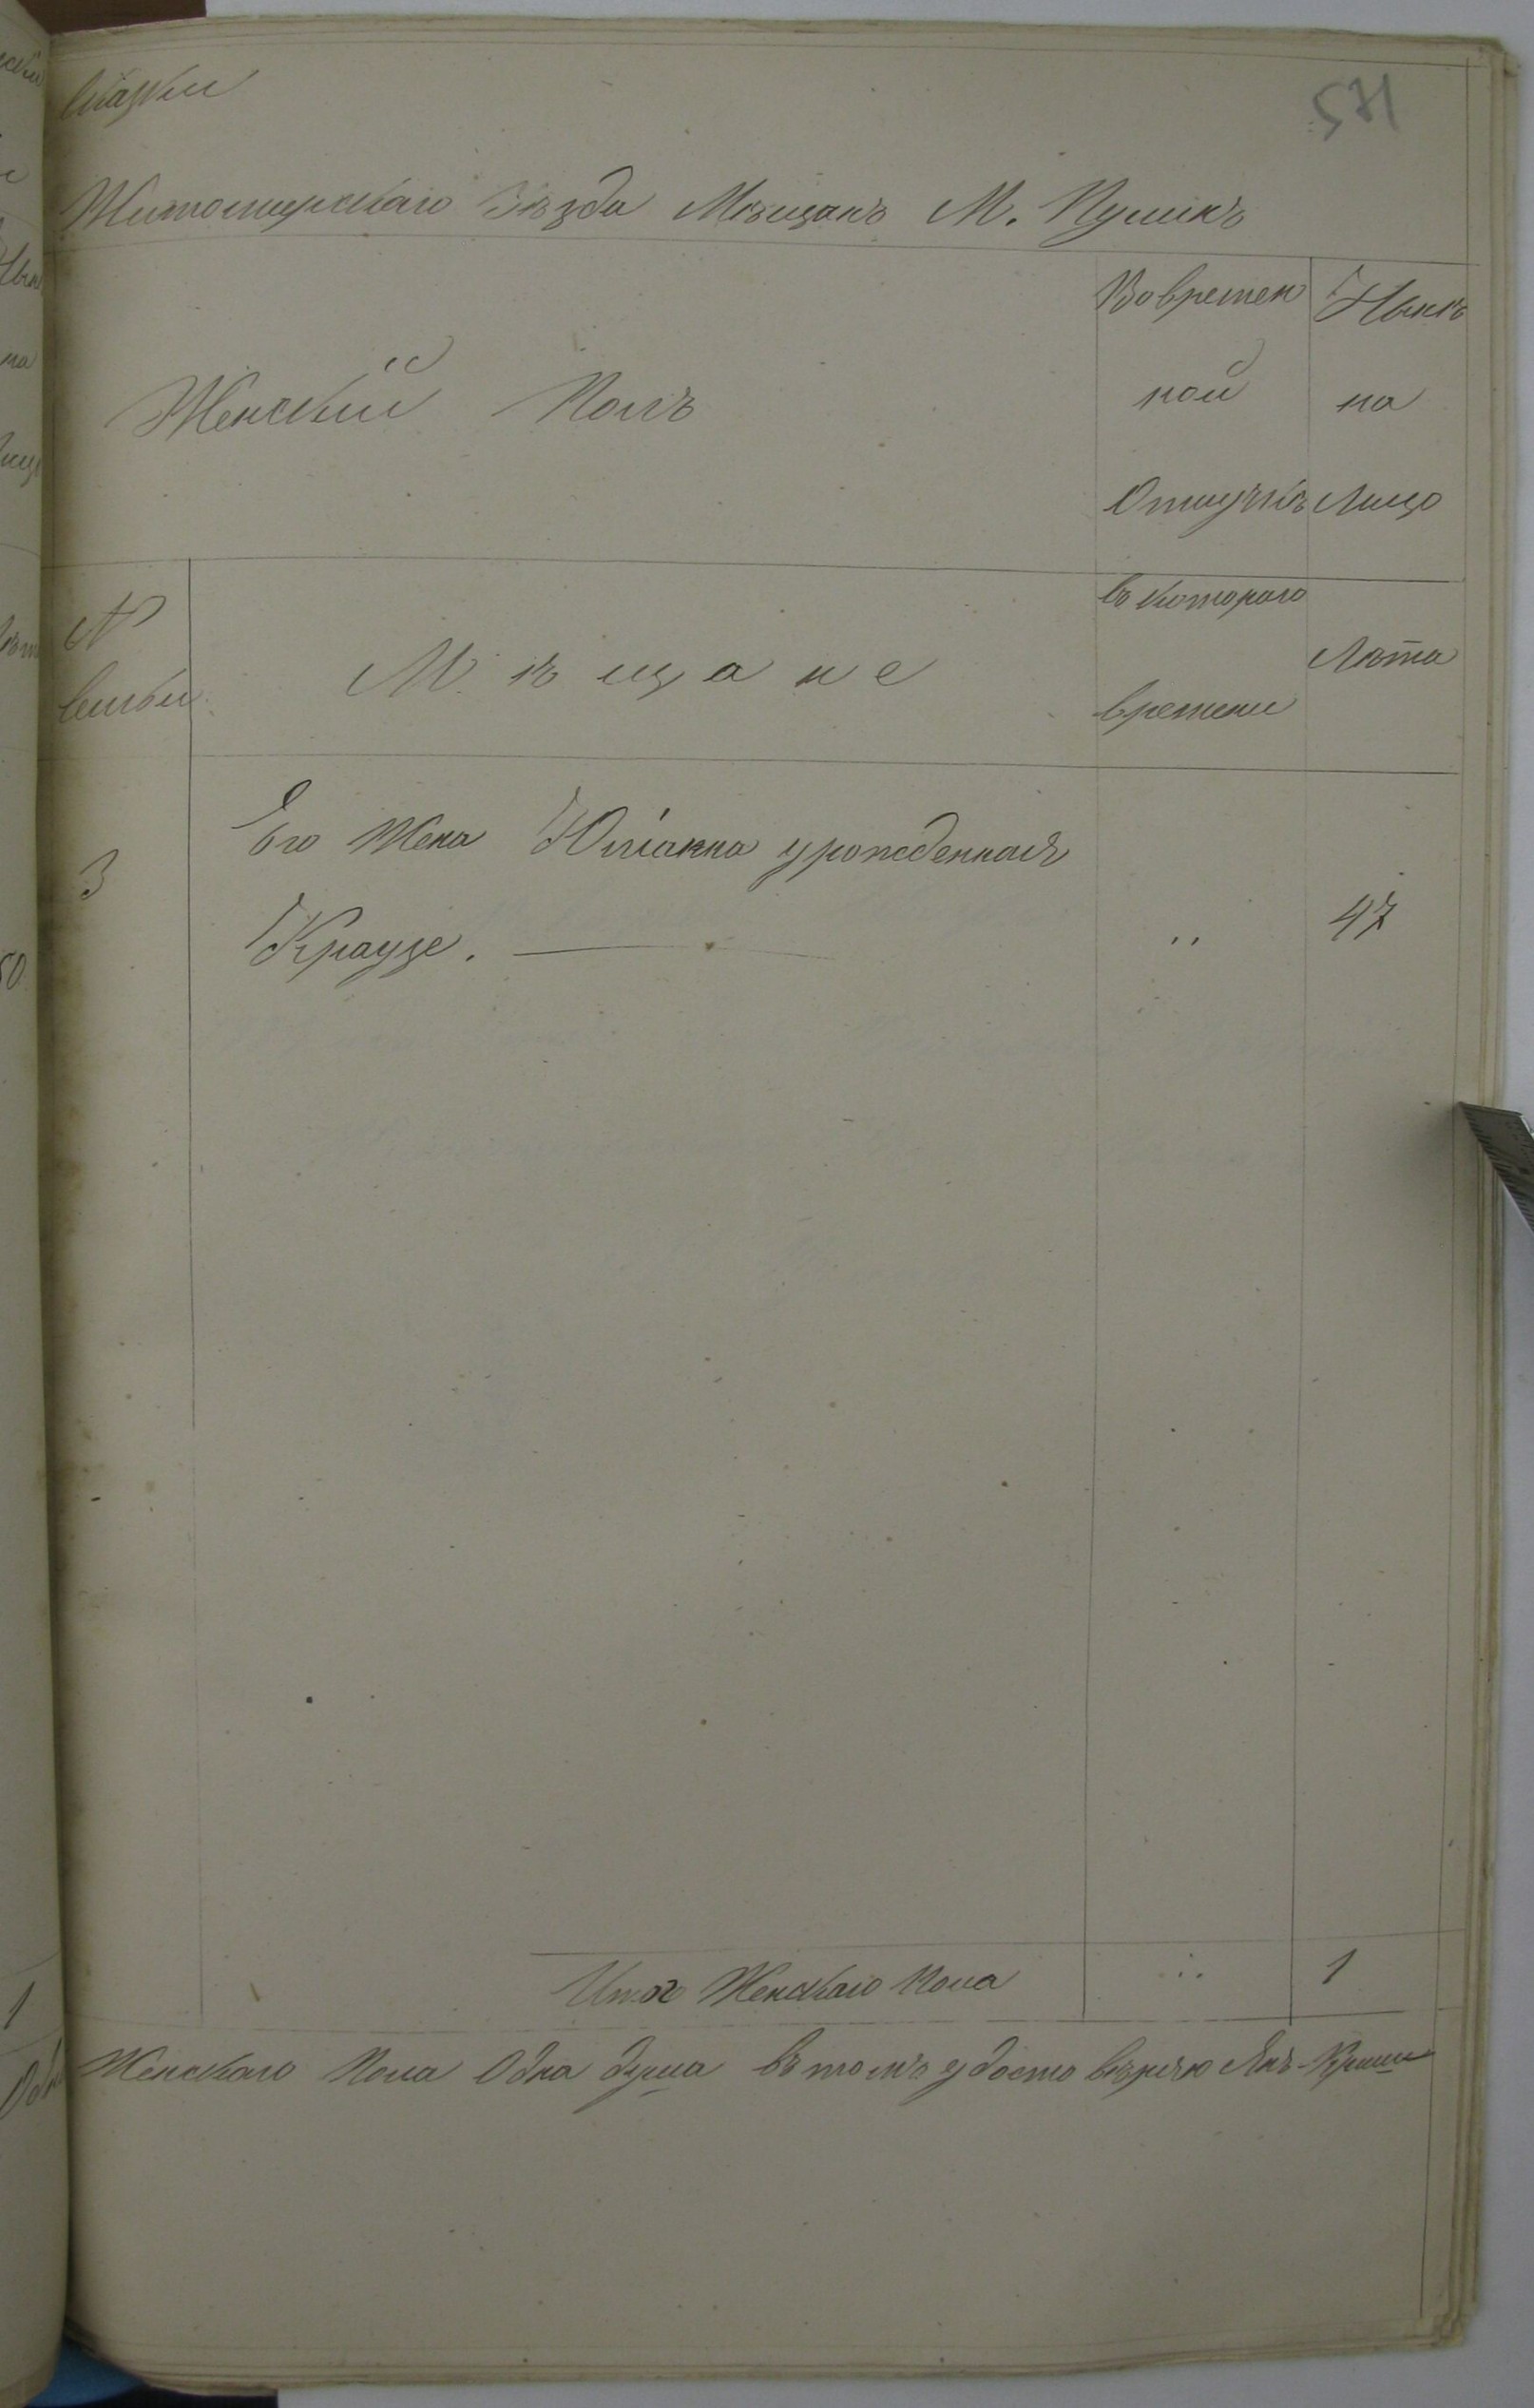 сказки
571
Житомирскаго Уѣзда Мѣщанъ М. Пулинъ
Женскій Полъ
Вовремен
ной
Отлучкѣ
Нынѣ
на
Лицо
№
семьи
Мѣщане
съ котораго
времени
Лѣта
3
Его Жена Юліанна урожденная
Краузе.
47
Итого Женскаго Пола
1
Женскаго Пола Одна душа въ томъ удостовѣряю